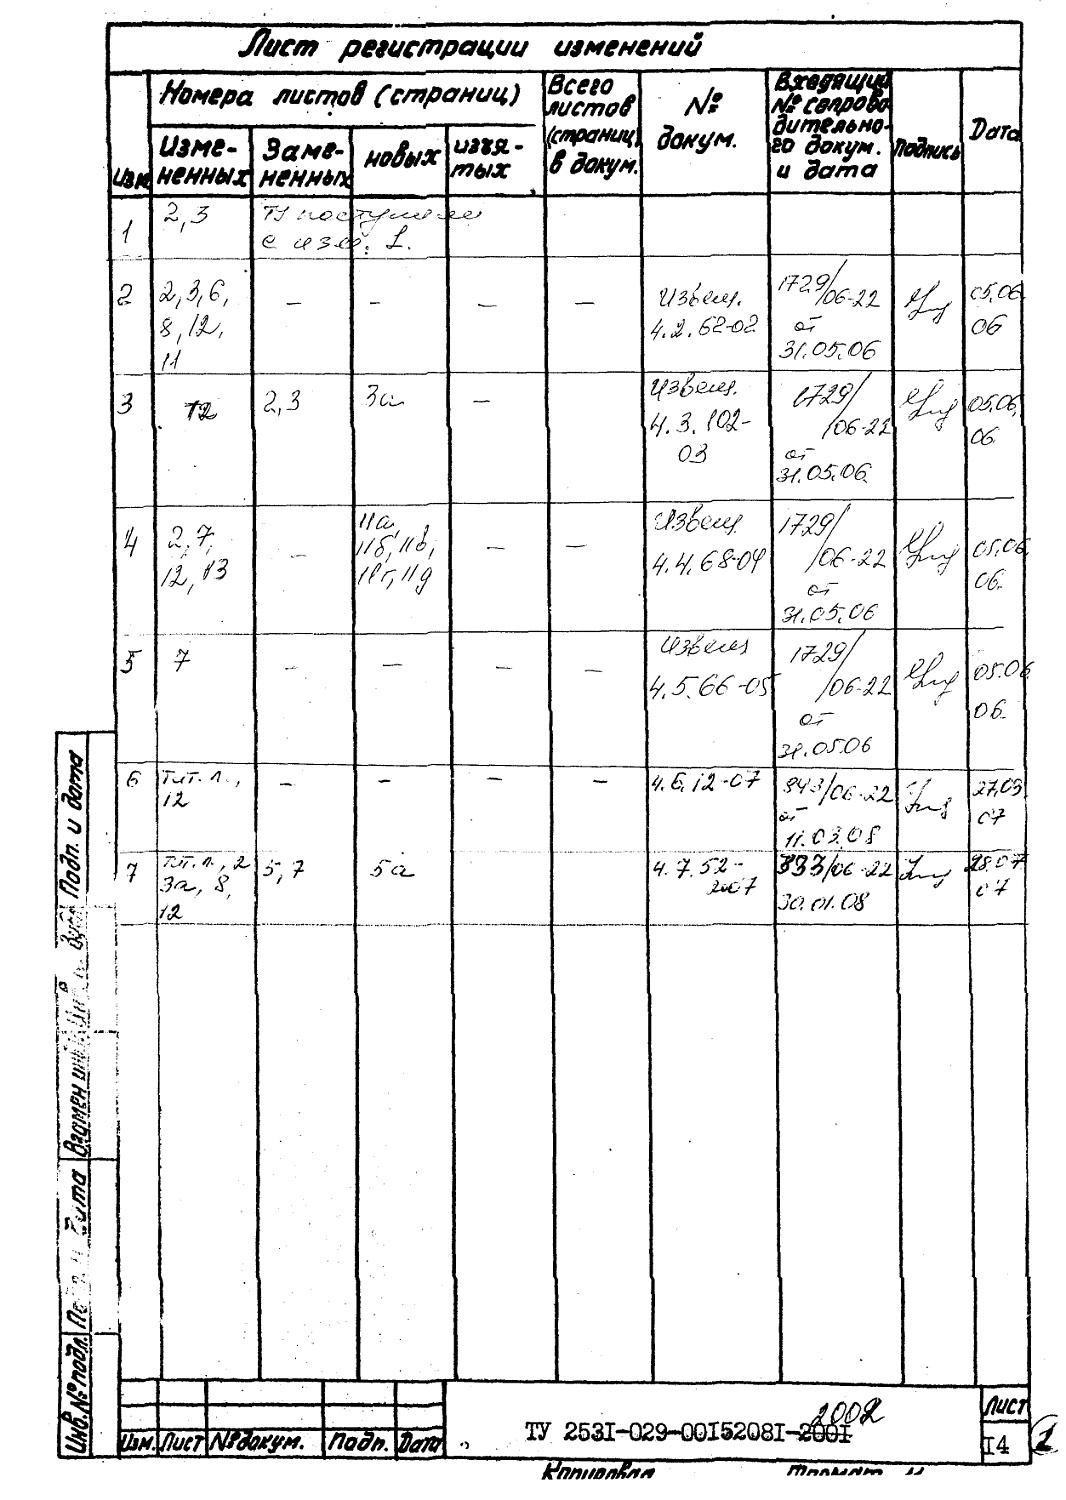 Лист регистрации изменений
Номера листов (страниц)
Всего листов (страниц) в докум.
№ докум.
Входящий № сопроводительного докум. и дата
Подпись
Дата
Изм
Измененных
Замененных
новых
изъятых
1 2,3 ТУ поступили
с изм. 1.
2 2,3,6, 8,12, 11 — — — — Извещ. 4.2.62-02 1729/06-22 от 31.05.06 05.06.06
3 12 2,3 3а — Извещ. 4.3.102-03 1729/06-22 от 31.05.06 05.06.06
4 2,7, 12,13 — 11а, 11б, 11в, 11г, 11д — — Извещ. 4.4.68-04 1729/06-22 от 31.05.06 05.06.06.
5 7 — — — — Извещ 4.5.66-05 1729/06-22 от 31.05.06 05.06 06.
6 тит. л., 12 — — — — 4.6.12-07 943/06-22 от 11.03.08 27.03 07
7 тит. л., 2 3а, 8, 12 5,7 5а 4.7.52-2007 333/06-22 30.01.08 28.07 07
Подп. и дата
Взамен инв.
дата
Инв. № подл.
Изм. Лист № докум. Подп. Дата
ТУ 2531-029-00152081-2001
2002
Лист
14
1
Копировал Формат